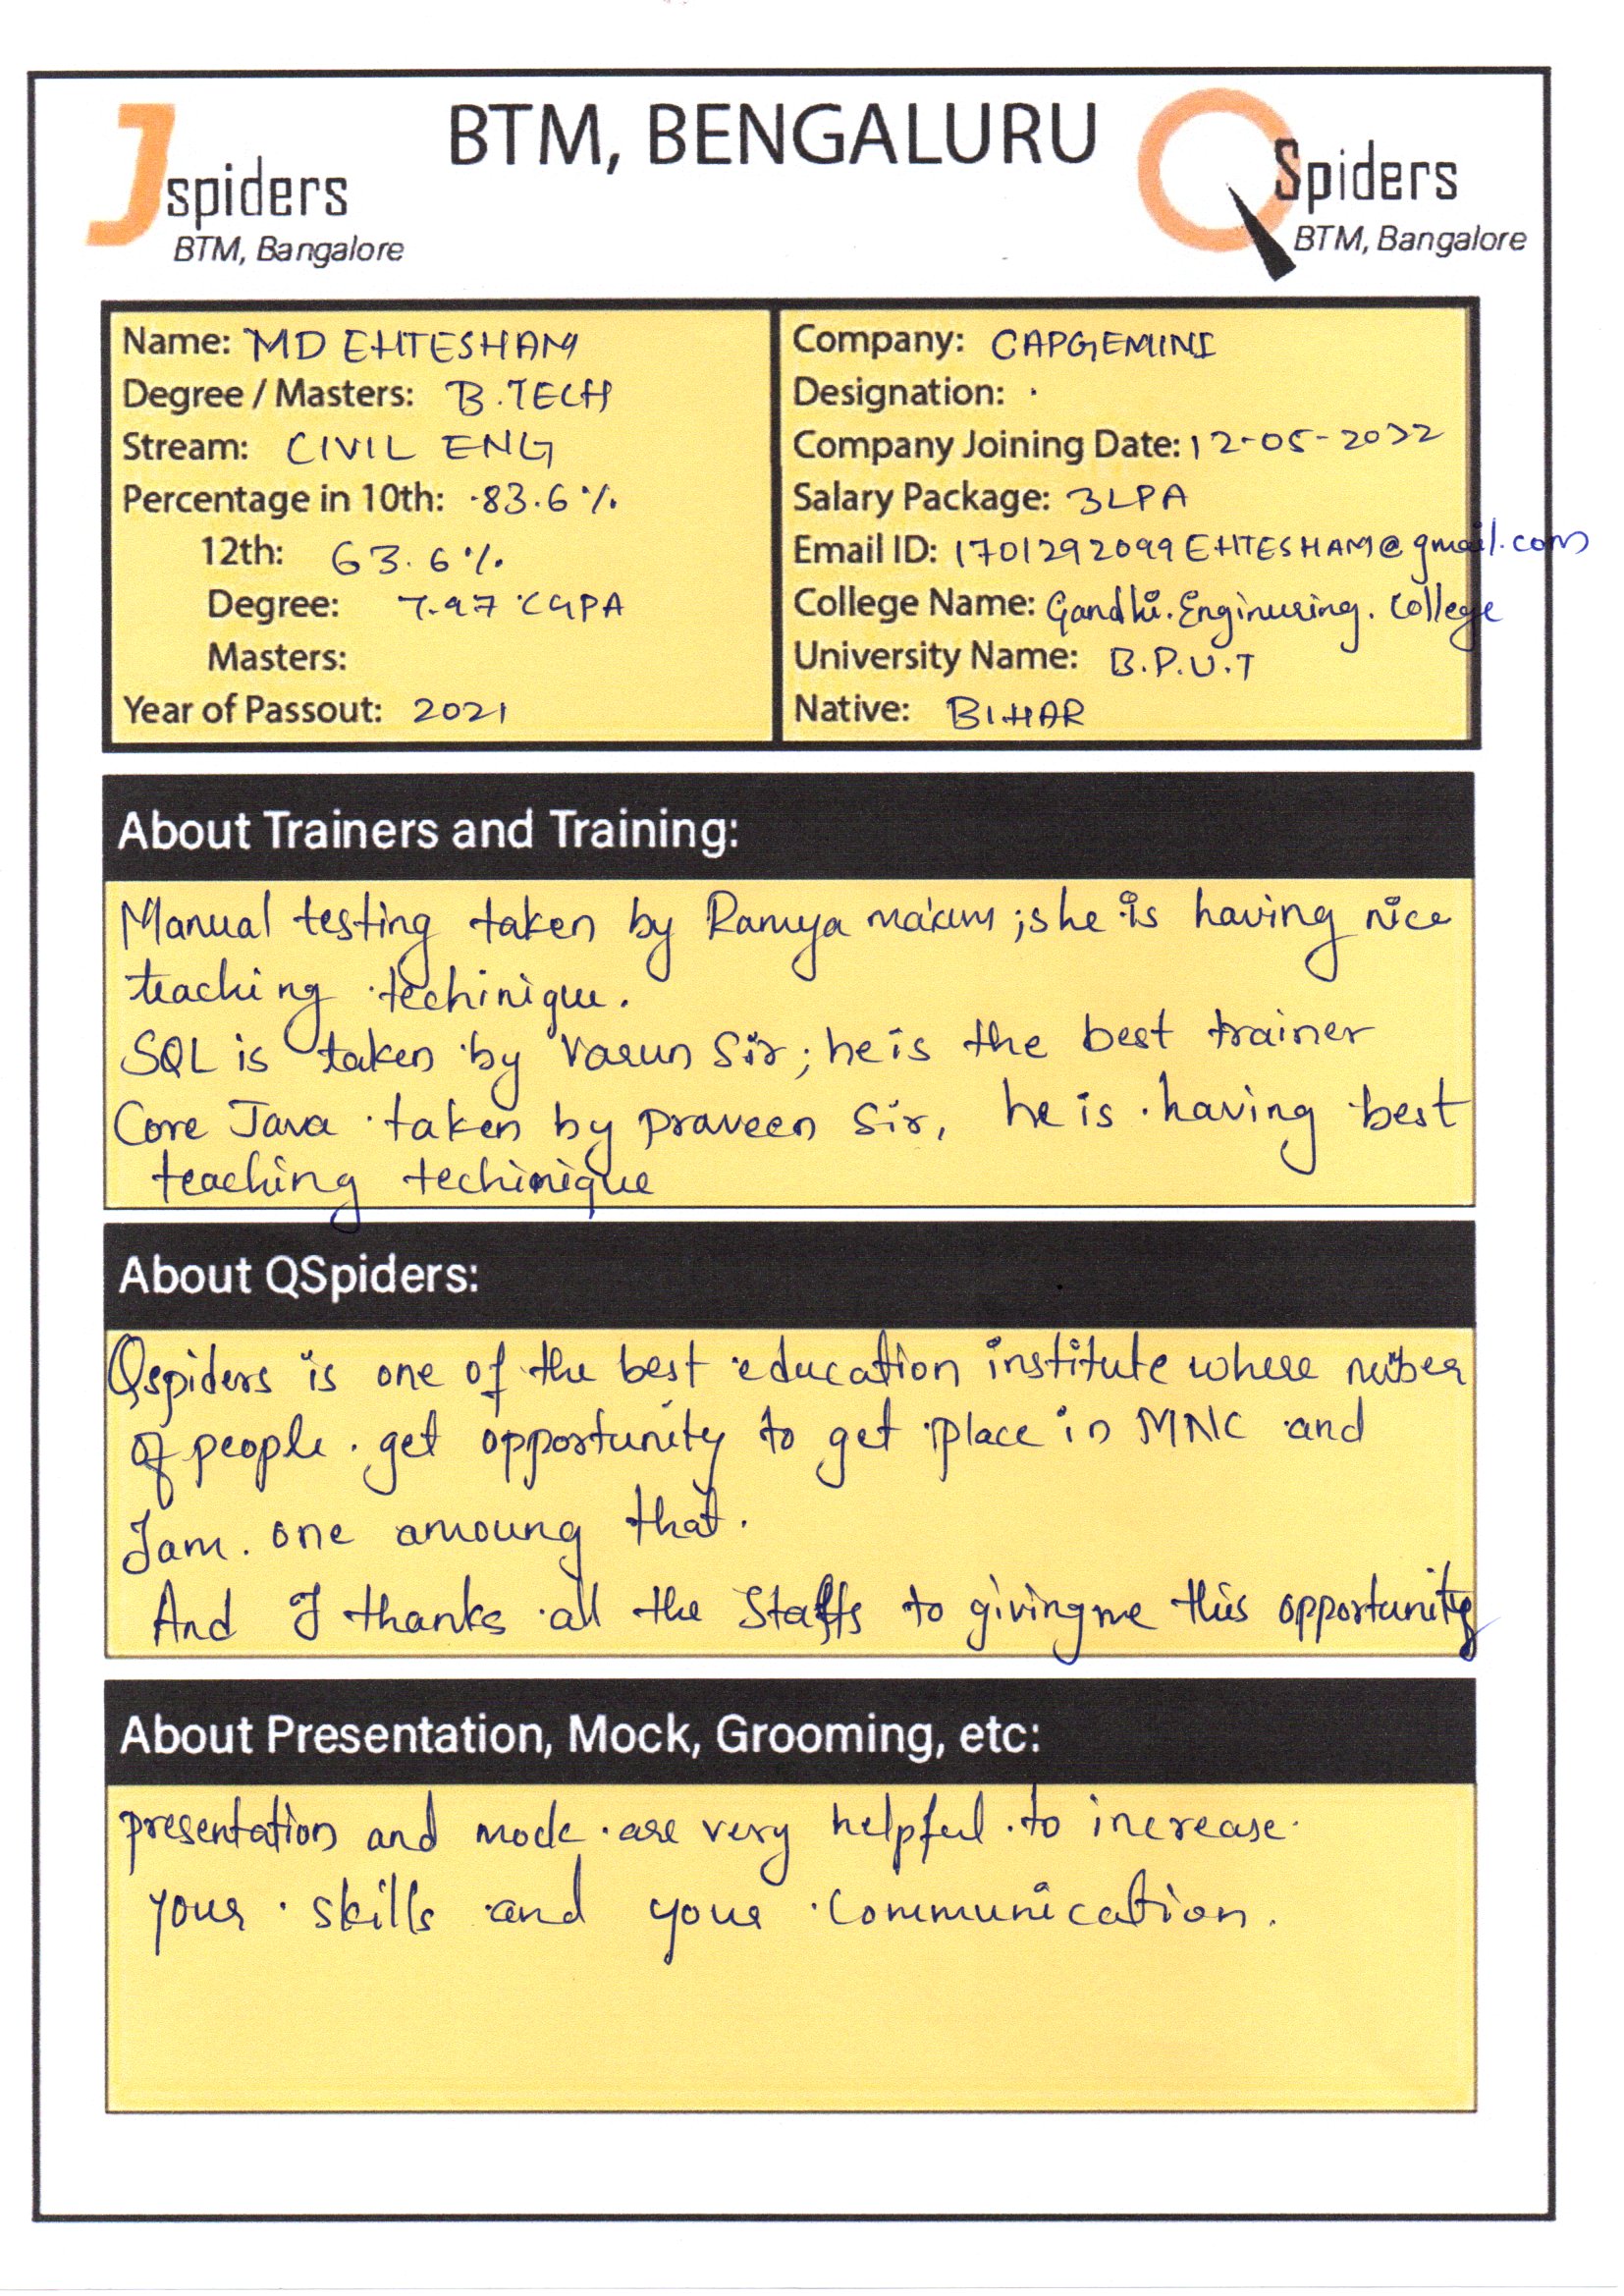 BTM, BENGALURU
Jspiders
BTM, Bangalore
QSpiders
BTM, Bangalore
Name: MD EHTESHAM
Degree / Masters: B.TECH
Stream: CIVIL ENG
Percentage in 10th: 83.6%
12th: 63.6%
Degree: 7.97 CGPA
Masters:
Year of Passout: 2021
Company: CAPGEMINI
Designation:
Company Joining Date: 12-05-2022
Salary Package: 3LPA
Email ID: 1701292099EHTESHAM@gmail.com
College Name: Gandhi Enginnering. College
University Name: B.P.U.T
Native: BIHAR
About Trainers and Training:
Manual testing taken by Ramya ma'am ; she is having nice
teaching techinique.
SQL is taken by Varun Sir ; he is the best trainer
Core Java taken by praveen Sir, he is having best
teaching techinique
About QSpiders:
Qspiders is one of the best education institute where
of people get opportunity to get place in MNC and
I am one amoung that.
And I thanks all the Staffs to giving me this opportunity
About Presentation, Mock, Grooming, etc:
presentation and mock are very helpful to increase
your skills and your communication.